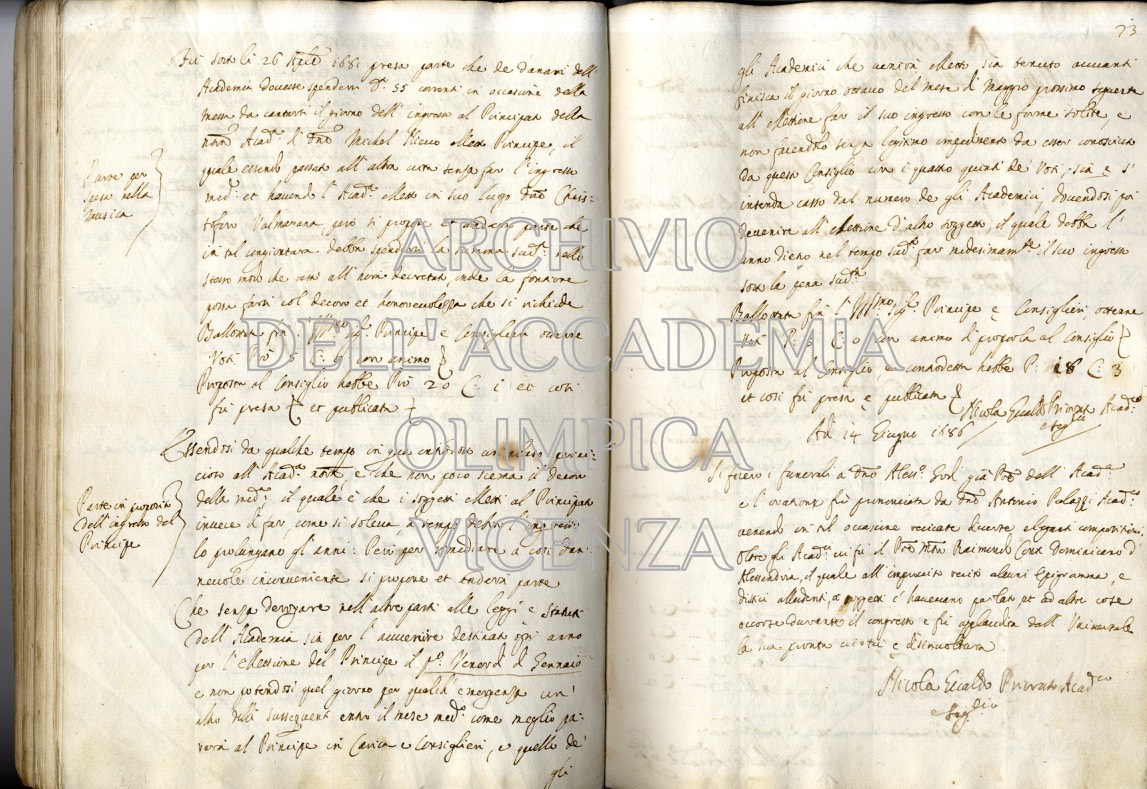 Fù sotto li 26 Aple 1681 presa parte che de danari dell'
Academia dovesse spendersi Dti 55 correnti in occasione della
messa da cantarsi il giorno dell'ingresso al Principato della
nostra Acadª il Michel eletto Principe, il
quale essendo passato all'altra senza far l'ingresso
medº: et havendo l'Acadª eletto in suo luogo Chris-
toforo Valmarana, però si propone et anderà parte che
in tal congiontura debba spendersi la summa sudª: nello
stesso modo che restò all'hora decretato, onde la fontione
possa farsi col decoro et honorevolezza che si richiede
Ballottata frà l'Illmo Sigr Principe e Consiglieri ottenne
Voti Prò 6 C: con animo
Proposta al Consiglio hebbe Prò 20 C: 1 et così
fù presa et publicata
Parte per
spesa nella
Musica
Essendosi da qualche tempo in quà perni-
cioso all'Acadª nostra, e che non poco scema il decoro
della medª: il quale è che i soggetti eletti al Principato
invece di far, come si soleva à tempi debiti
lo prolungano gl'anni: Però per rimediare à così dan-
nevole inconveniente si propone et anderà parte
Che senza derogare nell'altre parti alle leggi e statuti
dell'Academia sia per l'avvenire destinato ogni anno
per l'elettione del Principe il pº. Venerdì di Gennaio
e non potendosi quel giorno per qualch'emergenza un'
altro delli susseguenti entro il mese medº: come meglio pa-
rerà al Principe in Carica e Consiglieri, e quello de'
gli
Parte in proposito
dell'ingresso del
Principe
23
gli Academici che venirà eletto sia tenuto avvanti
finisca il giorno ottavo del mese di Maggio prossimo seguente
all'elettione far il suo ingresso con le forme solite, e
non facendolo senza legitimo impedimento da esser conosciuto
da questo Consiglio con i quattro quinti de' Voti, sia e s'
intenda casso dal numero de gli Academici, dovendosi poi
devenire all'elettione d'altro soggetto, il quale debba l'
anno dietro nel tempo sudº far medesimamte il suo ingresso
sotto la pena sudª:
Ballottata frà l'Illmo Sigr Principe e Consiglieri ottenne
Voti P: 6 C: 0 con animo di proporla al Consiglio
Proposta al Consiglio, e hebbe P: 18 C: 3
et così fù presa e publicata
Nicola Gualdo Acadco
e Segrio
Ad 14 Giugno 1686
Si fecero i funerali a già dell'Acadª
e l'oratione fù pronunciata da Antonio Acadco
venendo in tal occasione recitate diverse eleganti compositioni
oltre gli Acadci vi fù il Raimondo Dominicano d'
Alessandria, il quale all'improviso recitò alcuni Epigrammi, e
distici alludenti à soggetti c'havevano parlato, et ad altre cose
occorse durante il congresso e fù applaudita dall'Universale
la sua pronta e disinvoltura
Nicola Gualdo Acadco
e Segrio
ARCHIVIO
DELL'ACCADEMIA
OLIMPICA
VICENZA